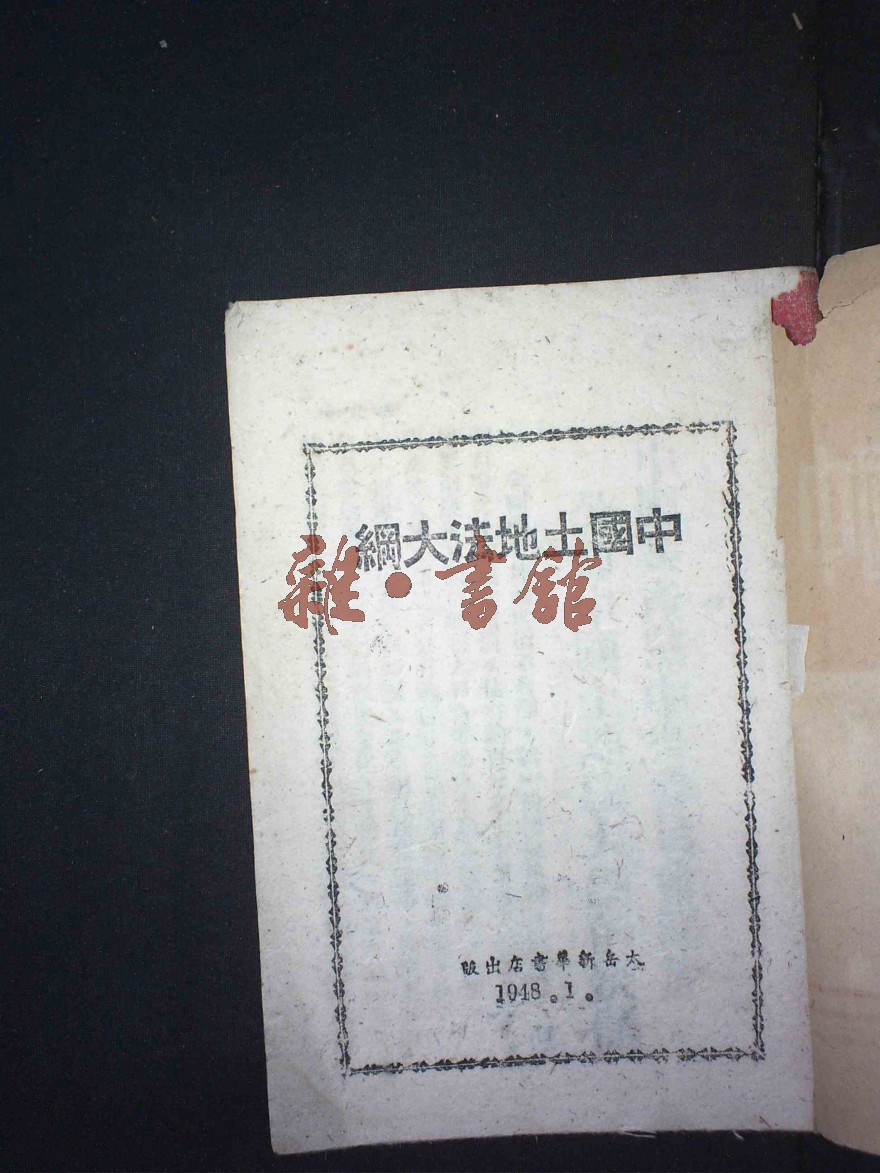 中國土地法大綱
雜·書館
太岳新華書店出版
1948.1.